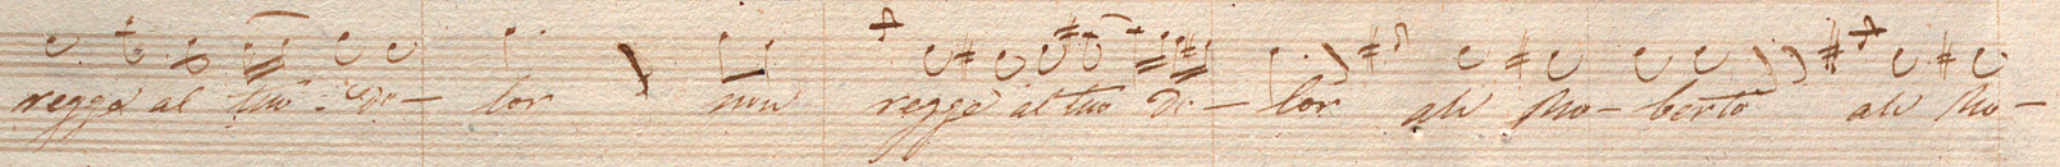 regge al tuo do- lor non regge al tuo do- lor ah Ro- berto ah Ro-